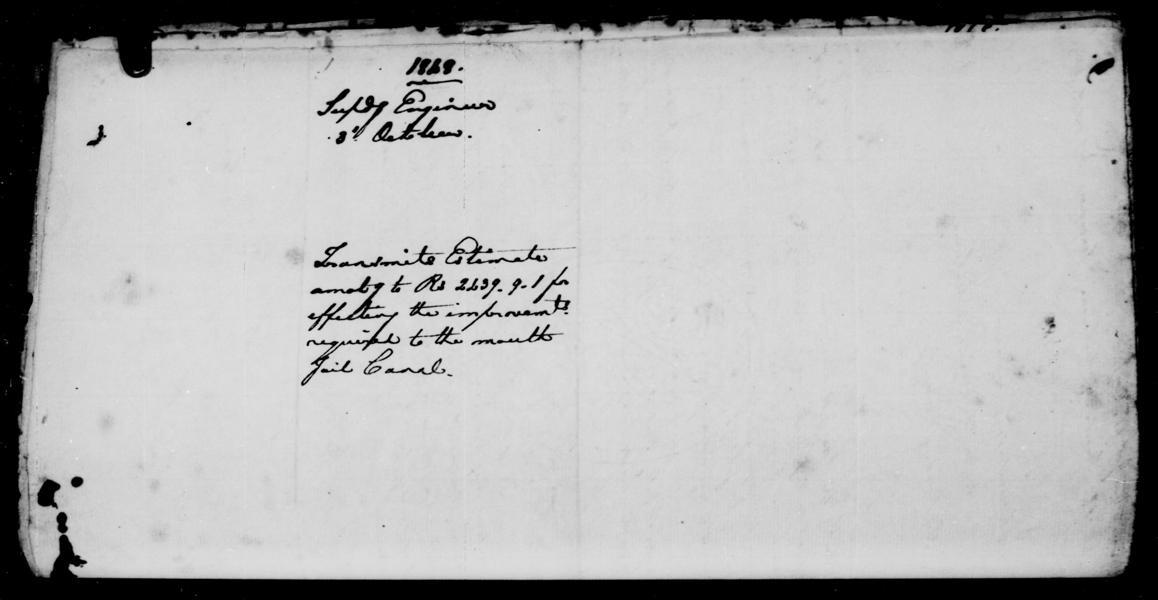 1868.
Supdg Engineer
3d October.
Transmits Estimate
amotg to Rs 2639. 9. 1 for
effecting the improvemts
required to the mouth
Jail Canal.